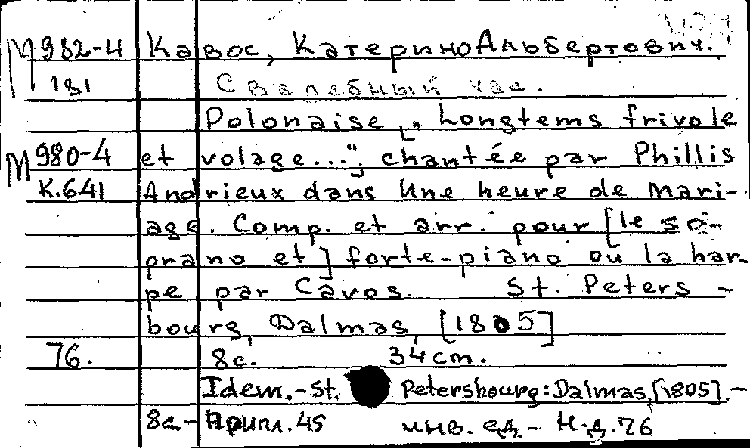 М 982-4 Кавос, Катерино Альбертович.
181 Свадебный хас.
Polonaise [„ Longtems frivole
М 980-4 et volage..."], chantée par Phillis
К.641 Andrieux dans Une heure de Mari-
age. Comp. et arr. pour [le so-
prano et] forte-piano ou la har-
pe par Cavos. St. Peters-
bourg, Dalmas, [1805]
76. 8с. 34 cm.
Idem.-St. Petersbourg: Dalmas, [1805].-
8с.- Прил. 45 инв. ед.- Н.д. 76